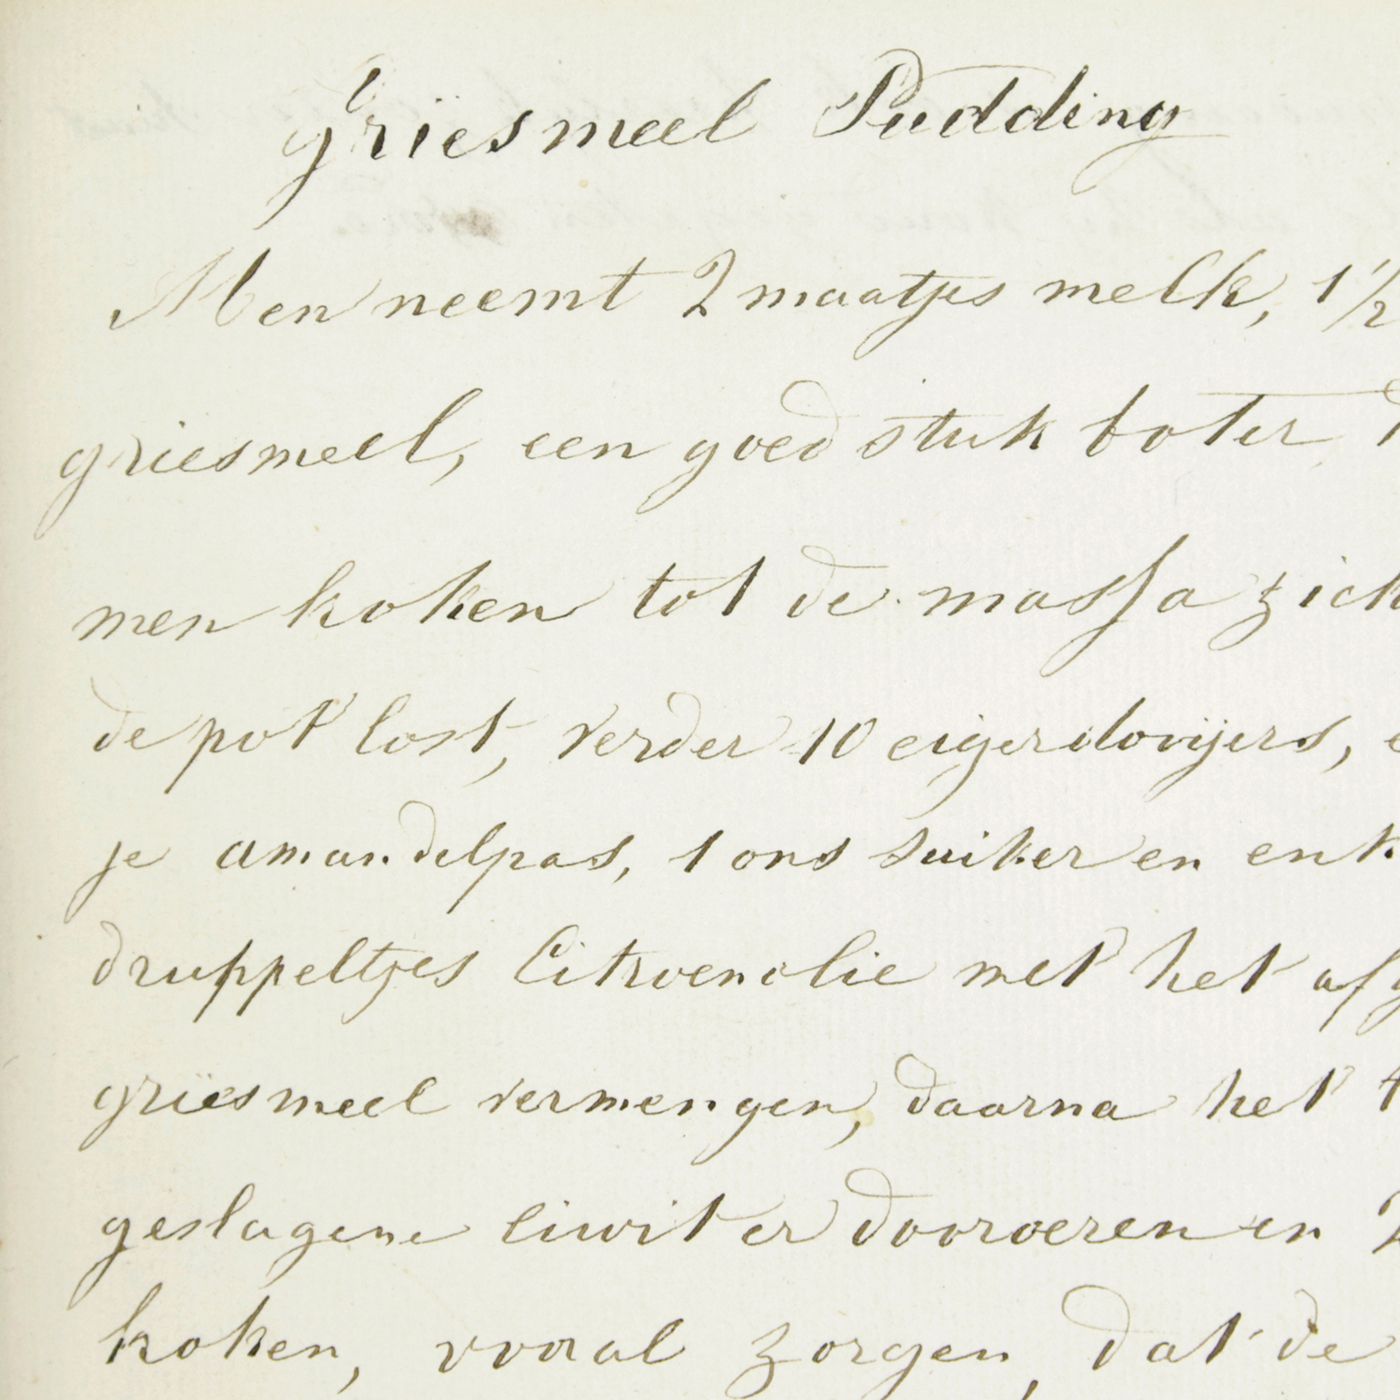 Griesmeel Pudding
Men neemt 2 maatjes melk, 1 1/2
griesmeel, een goed stuk boter
men koken tot de massa zich
de pot lost, verder 10 eigerdovijers,
je amandelpas, 1 ons suiker en enk
druppeltjes Citroenolie met het afg
griesmeel vermengen, daarna het
geslagene eiwit er dooroeren en 2
koken, vooral zorgen, dat de